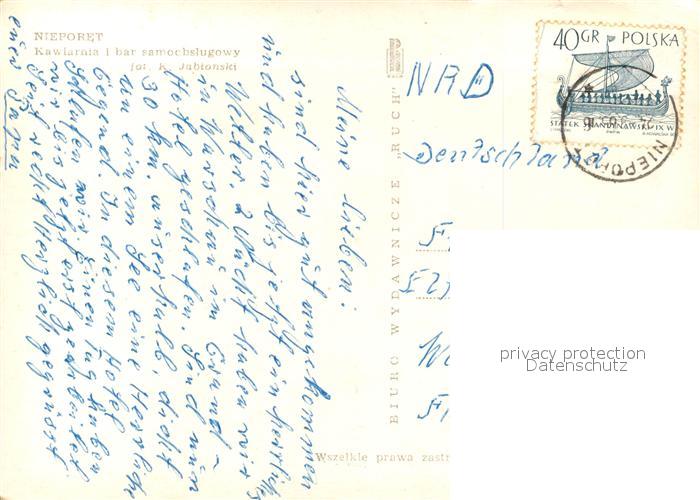 NIEPORĘT
Kawiarnia i bar samoobsługowy
fot. K. Jabłoński
Meine Lieben!
sind hier gut angekommen
und haben bis jetzt ein herrliches
Wetter. 2 Nächte haben wir
in Warschau im Grand-
Hotel geschlafen. Sind nun
30 km. außerhalb, dicht
an einem See eine Herrliche
Gegend. In diesem Hotel
schlafen wir. Einen Tag haben
wir bis jetzt erst gearbeitet
Seit recht Herzlich gegrüsst
BIURO WYDAWNICZE „RUCH"
NRD
Deutschland
40 GR POLSKA
STATEK SKANDYNAWSKI IX W.
NIEPORĘT
privacy protection
Datenschutz
Wszelkie prawa zastr